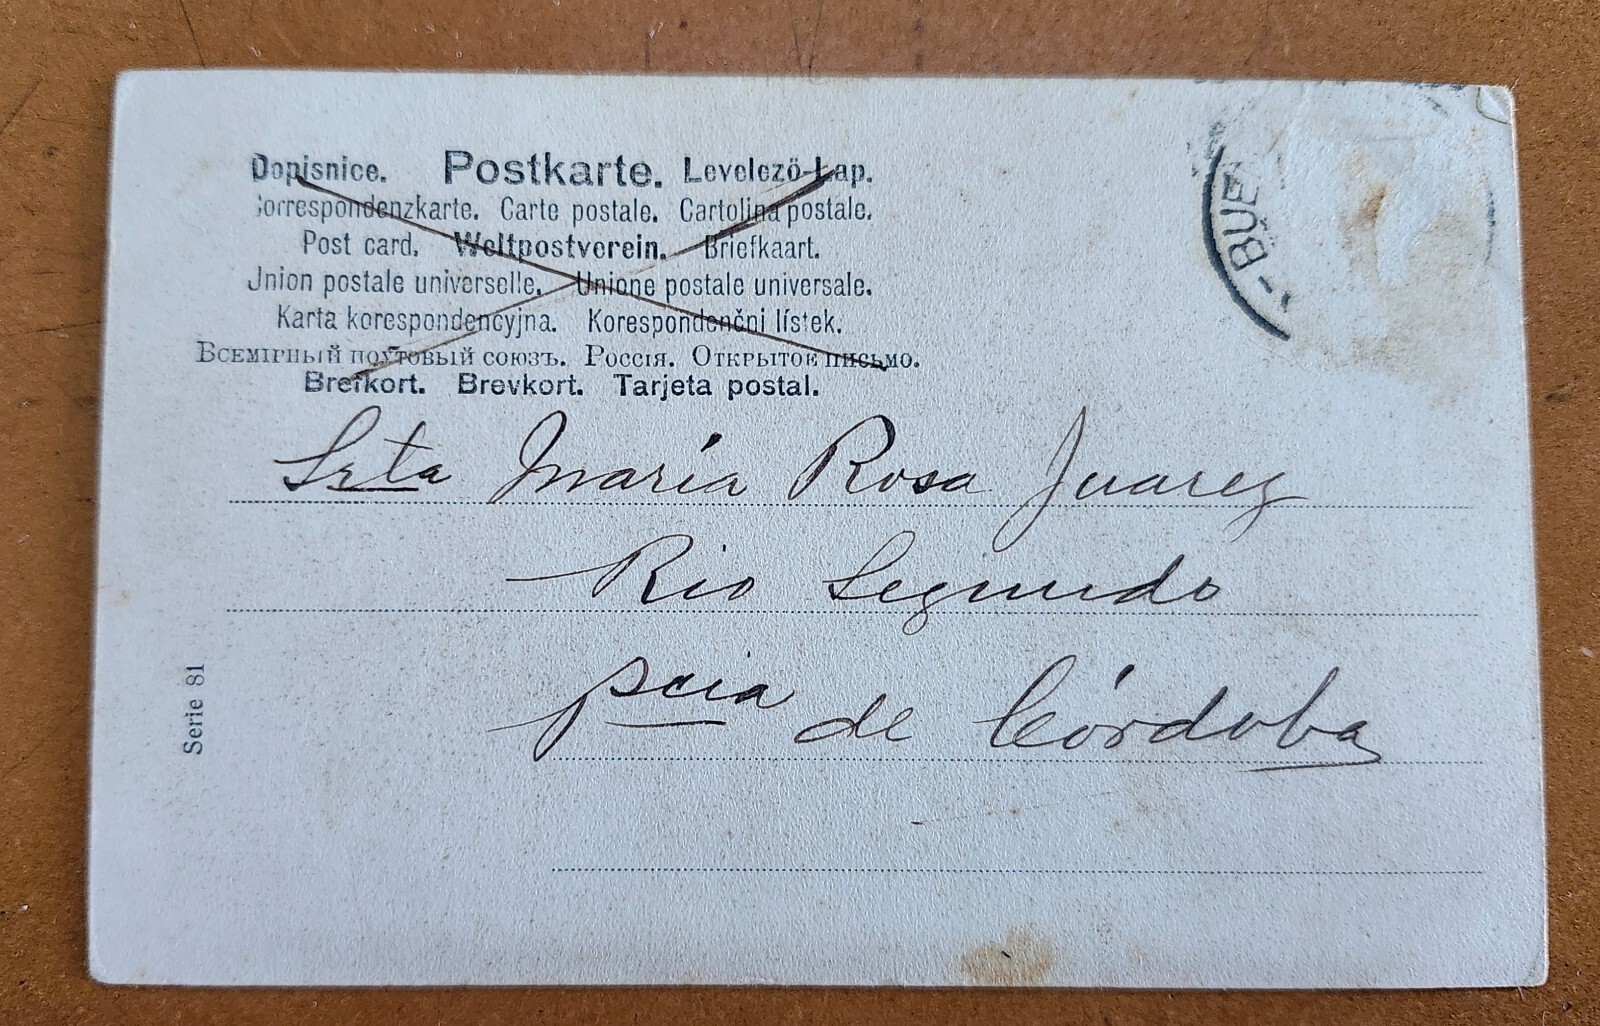 Dopisnice. Postkarte. Levelező-Lap.
Correspondenzkarte. Carte postale. Cartolina postale.
Post card. Weltpostverein. Briefkaart.
Union postale universelle. Unione postale universale.
Karta korespondencyjna. Korespondenční lístek.
Всемірный почтовый союзъ. Россія. Открытое письмо.
Brefkort. Brevkort. Tarjeta postal.
- BUE
Srta María Rosa Juarez
Rio Segundo
pcia de Córdoba
Serie 81